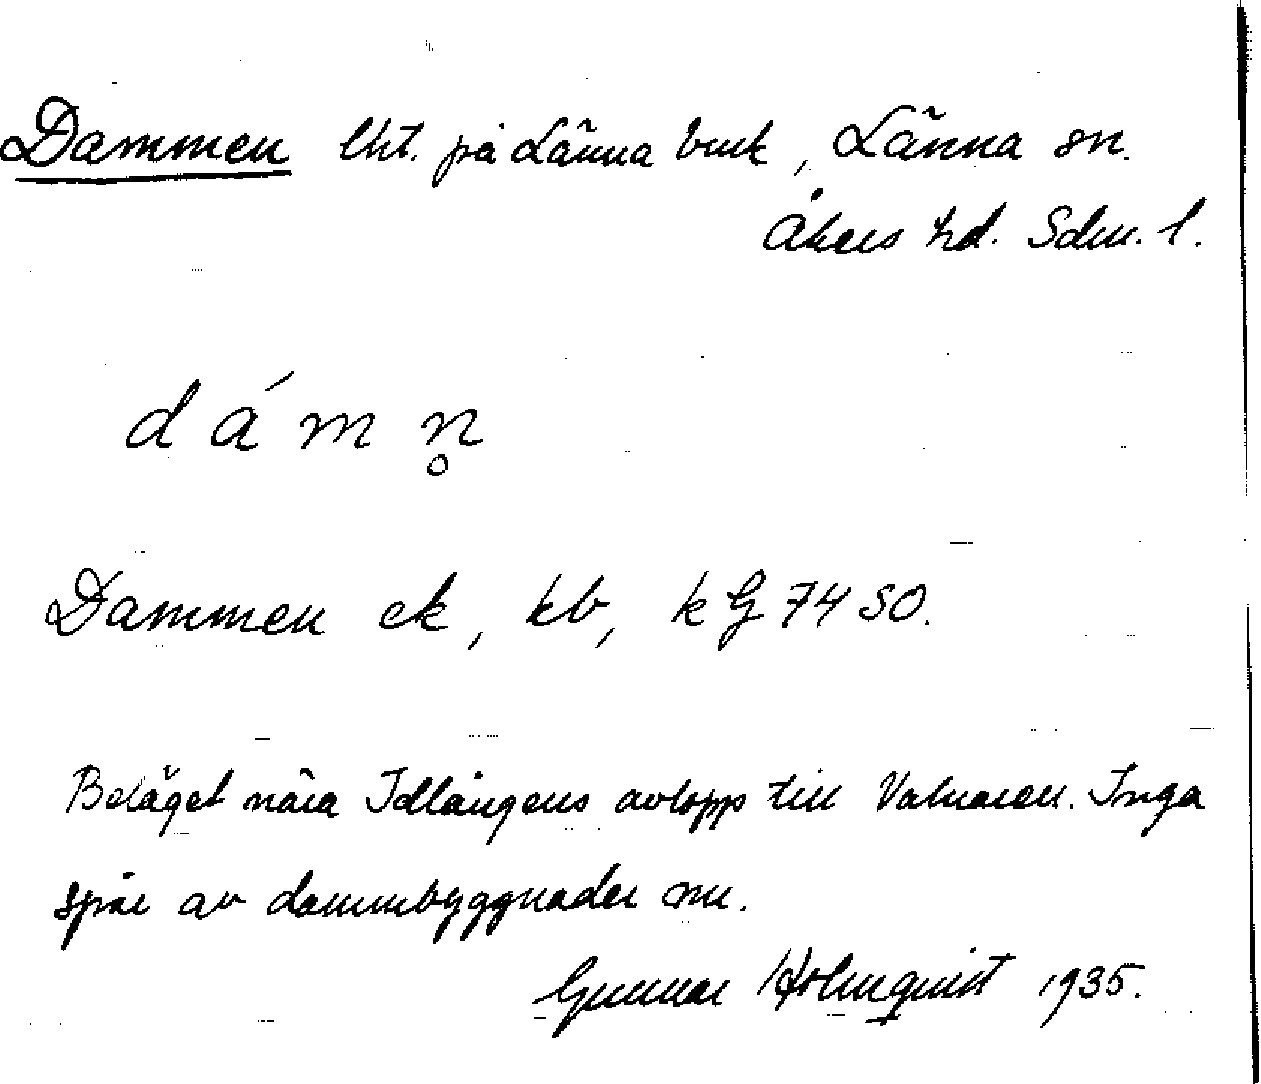 Dammen lht. på Länna bruk, Länna sn.
Åkers hd. Sdm. l.
dámn̥
Dammen ek, kb, k G 7450.
Beläget nära Idlångens avlopp till Valnaren. Inga
spår av dammbyggnader nu.
Gunnar Holmquist 1935.